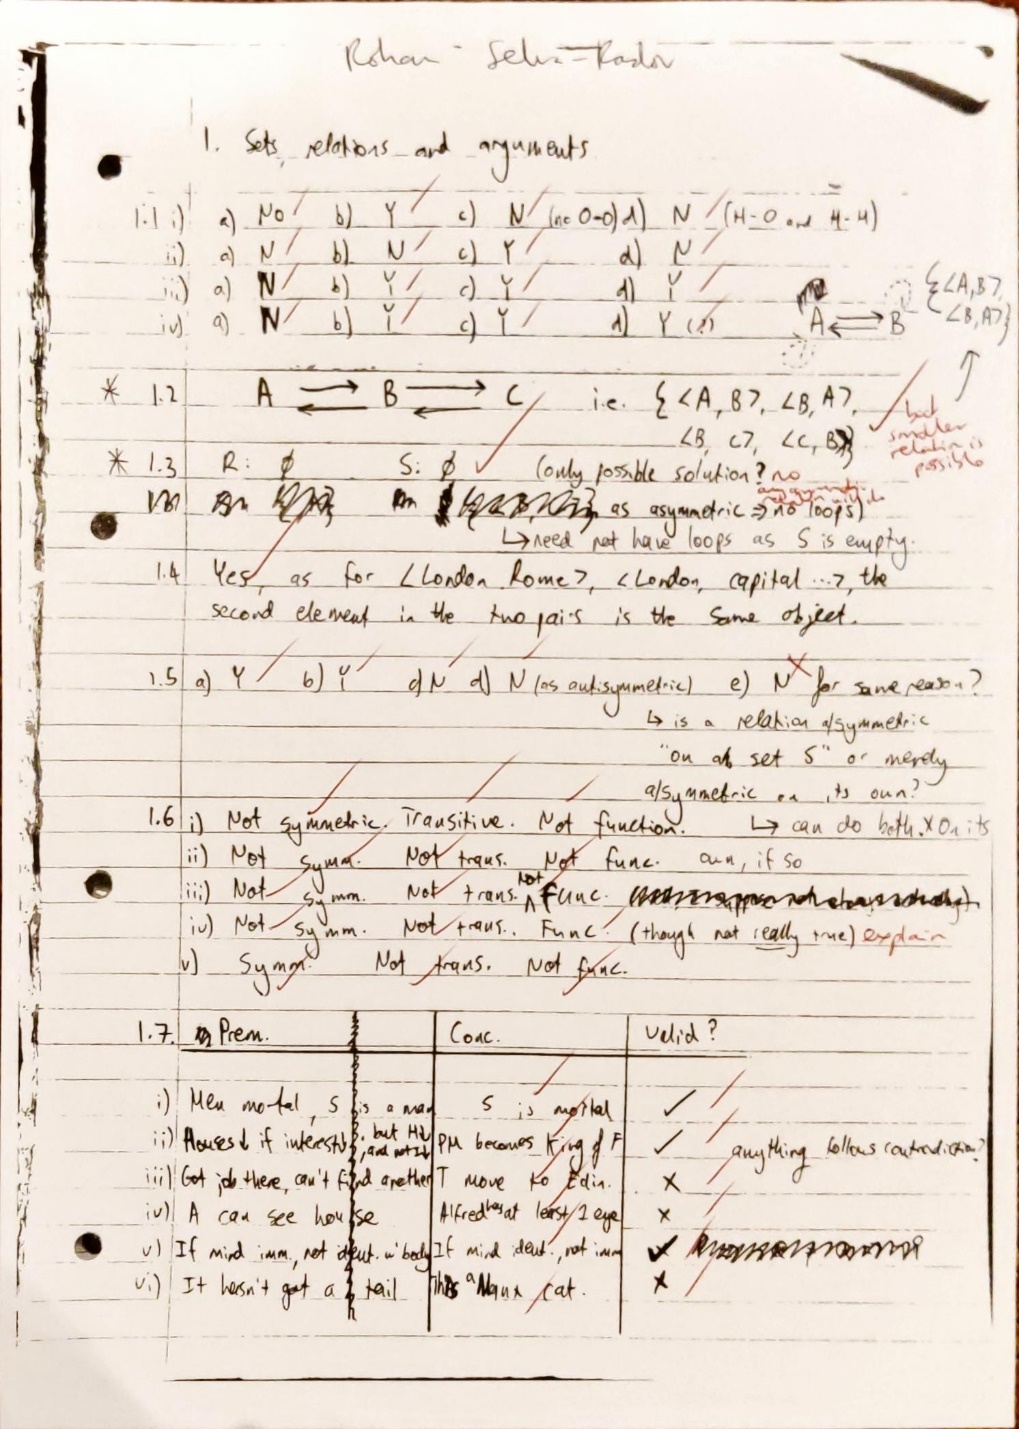 Rohan Selva-Radov
1. Sets, relations and arguments
1.1 i) a) No b) Y c) N (no O-O) d) N (H-O and H-H)
ii) a) N b) N c) Y d) N
iii) a) N b) Y c) Y d) Y
iv) a) N b) Y c) Y d) Y (?) A ⇄ B {<A,B>,
<B,A>}
* 1.2 A ⇄ B ⇄ C i.e. {<A, B>, <B, A>,
<B, C>, <C, B>}
but
smaller
relation is
possible
* 1.3 R: ∅ S: ∅ (only possible solution? no
as asymmetric ⇒ no loops)
↳ need not have loops as S is empty.
1.4 Yes, as for <London Rome>, <London, capital ...>, the
second element in the two pairs is the same object.
1.5 a) Y b) Y c) N d) N (as antisymmetric) e) N for same reason?
↳ is a relation a/symmetric
"on a set S" or merely
a/symmetric on its own?
1.6 i) Not symmetric. Transitive. Not function. ↳ can do both. On its
ii) Not symm. Not trans. Not func. own, if so
iii) Not symm. Not trans. Not Func.
iv) Not symm. Not trans. Func. (though not really true) explain
v) Symm. Not trans. Not func.
1.7. Prem. Conc. Valid?
i) Men mortal, S is a man S is mortal ✓
ii) Houses ↓ if interest , but , and not PM becomes King of F ✓ anything follows contradiction?
iii) Got job there, can't find another T move to Edin. ×
iv) A can see house Alfred has at least 1 eye ×
v) If mind imm., not ident. w' body If mind ident., not imm ✓
vi) It hasn't got a tail This a Manx cat. ×